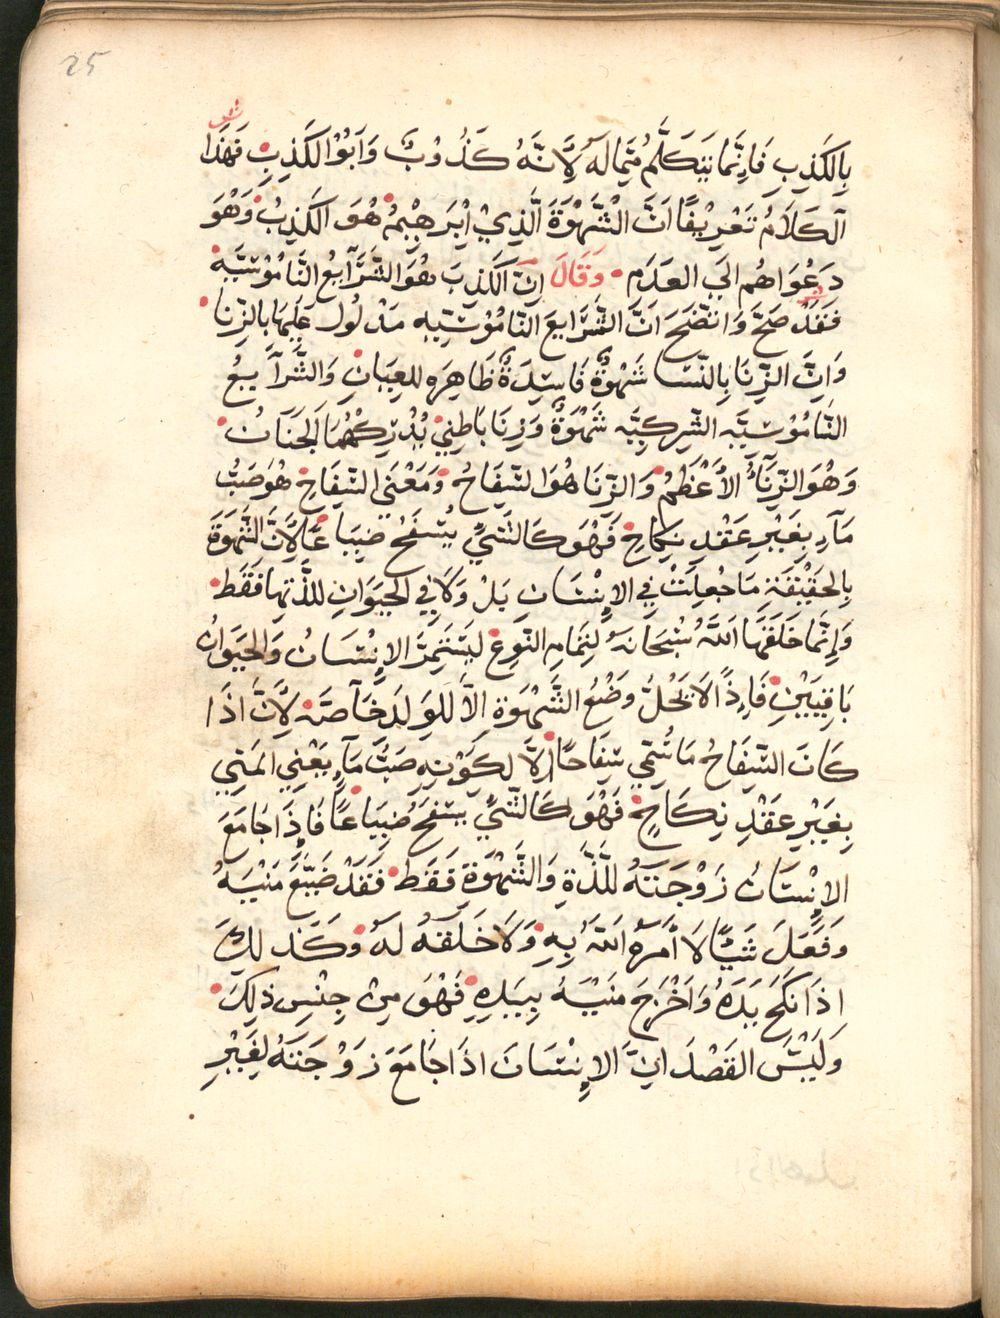 25
شرح
بِالكَذِبِ فَاِنَّمَا يَتَكَلَّمُ مِمَّا لَهُ لِاَنَّهُ كَذُوبٌ وَاَبُوْا الكَذِبِ فَهَذَا
اَلكَلَامُ تَعْرِيْفًا اَنَّ الْشَّهْوَةَ اَلَّذِيْ اِبْرَهِيْمُ هُوَ الكَذِبُ وَهُوَ
دَعْوَاهُم الي العَدَم وَقَالَ اِنَّ الكَذِبَ هُوَ الشَّرَآيِعُ النَّامُوْسِيَّه
شر
فَقَدْ صَحَّ وَانفَضَحَ اَنَّ الشَّرَايعَ النَّامُوْسِيَّه مَدْلُول عَلَيْهَا بالزِّنَا
وَاِنَّ الزِّنَا بِالنِّسَا شَهْوَةٌ فَاسِدَةٌ ظَاهِرَه لِلعِيَانِ وَالشَّرَآيِعُ
النَّامُوْسِيَّه الشِّركِيَّه شَهْوَةٌ وَزِنَا بَاطِنِيْ يُدْرِكْهُمَا الجَنَانُ
وَهُوَ الزِّنَآءُ الأَعْظَمُ وَالزِّنَا هُوَ السِّفَاحُ وَمَعْنَي السِّفَاحِ هُوَ صَبُّ
مَآءٍ بِغَيْرِ عَقْدِ نِكَاحٍ فَهُوَ كَالشَّيْءِ يُسْفَحُ ضِيَاعًا لِاَنَّ الشَّهْوَةَ
بِالحَقِيْقَةِ مَا جُعِلَتْ فِي الاِنْسَانِ بَلْ وَلَا فِي الحَيَوَانِ لِلَذَّتِهَا فَقَط
وَاِنَّمَا خَلَقَهَا اَللّٰهُ سُبْحَانَهُ لِتَمَامِ النَّوِع لِيَسْتَمِرَّ الاِنْسَانُ وَالحَيَوَانُ
بَاقِيَيْنِ فَاِذًا لَا يَحْلُّ وَضْعُ الشَّهْوَة اِلَّا لِلوَلَدِ خَآصَّة لِاَنَّ اذَا
كَانَ السِّفَاحُ مَا سُمِّيَ سِفَاحًا اِلَّا لِكَوْنِهِ صَبَّ مَآءٍ يَعْنِي المَنِي
بِغَيْرِ عَقْدِ نِكَاحٍ فَهْوَ كَالشَّيْءِ يسْفَحُ ضِيَاعًا فَاِذَا جَامَعَ
الاِنْسَانُ زَوْجَتَهُ لِلَّذَّةِ وَالشَّهْوَةِ فَقَط فَقَدْ ضَيَّعَ مَنِيَّهُ
وَفَعَلَ شَيْئًا لَا اَمَرَهُ اللّٰهُ بِهِ وَلَا خَلَقَهُ لَهُ وَكَذَلِكَ
اِذَا نَكَحَ يَدَهُ وَاَخْرَجَ مَنِيَّهُ بِيَدِهِ فَهْوَ مِنْ جِنْسِ ذَلِكَ
وَلَيْسَ القَصْدَ اَنَّ الاِنْسَانَ اذَا جَامَعَ زَوْجَتَهُ لِغَيْرِ